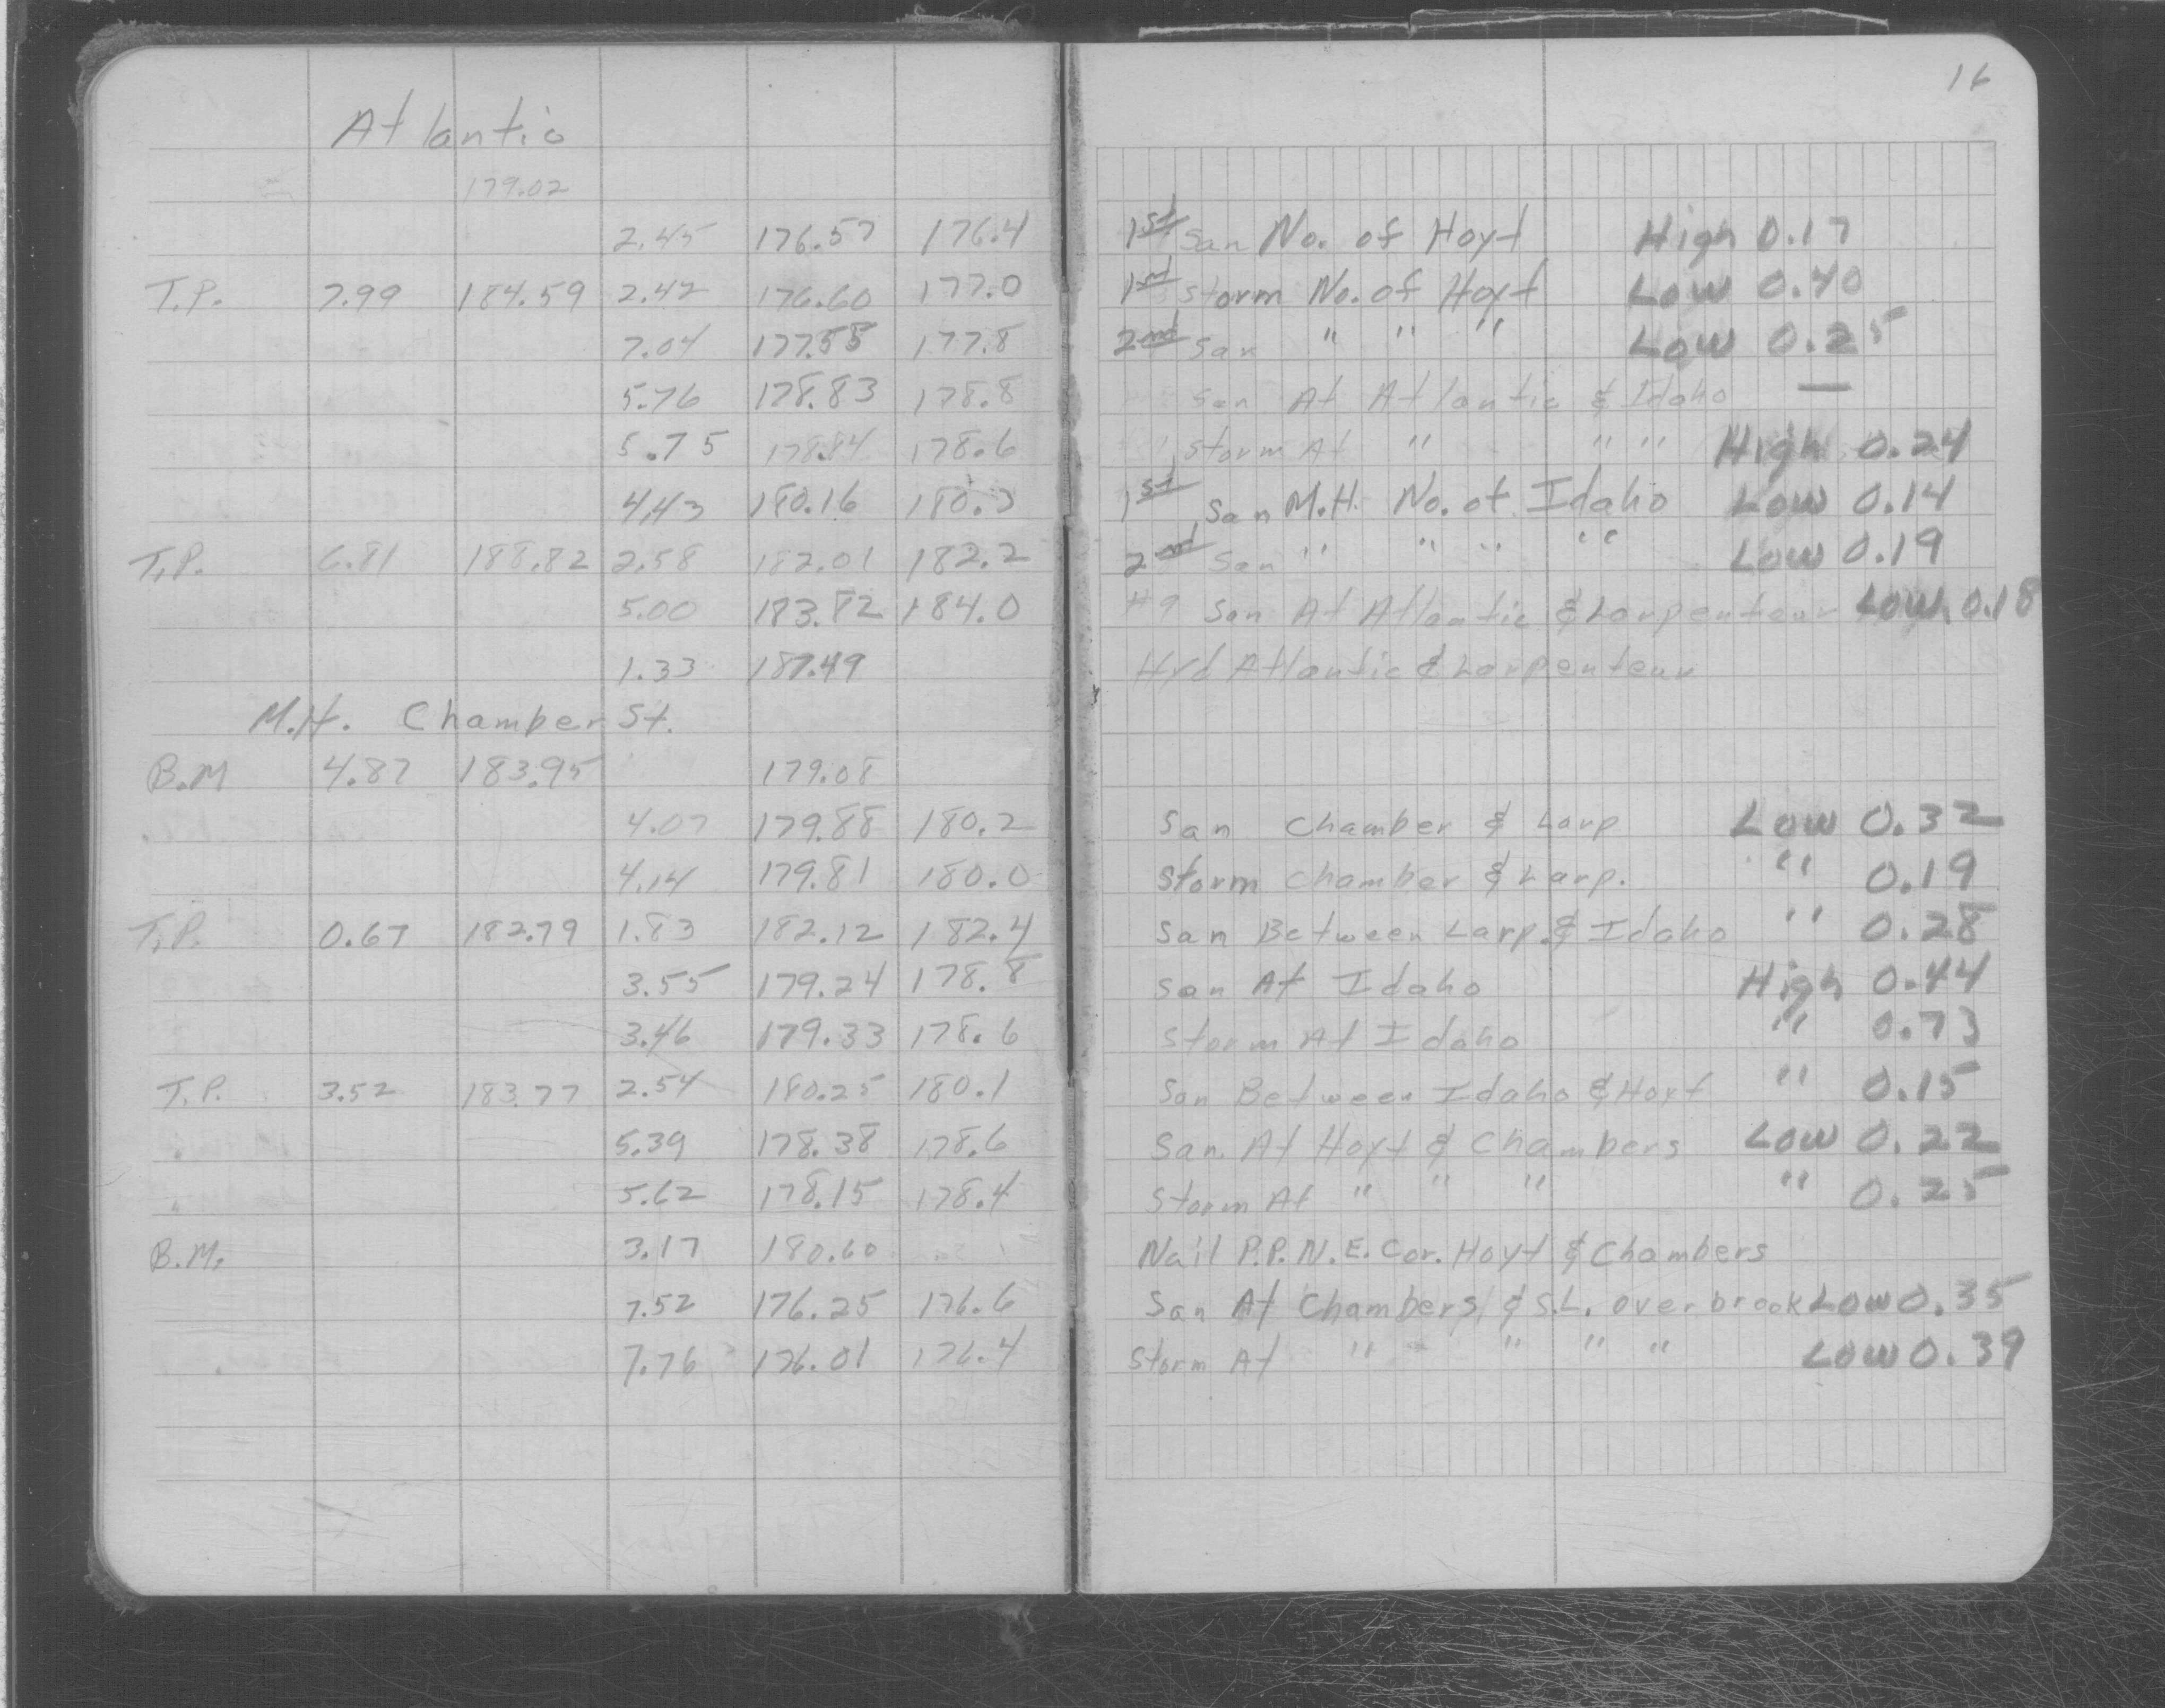 16
Atlantic
179.02
2.45 176.57 176.4 1st San No. of Hoyt High 0.17
T.P. 7.99 184.59 2.42 176.60 177.0 1st Storm No. of Hoyt Low 0.40
7.04 177.55 177.8 2nd San " " " Low 0.25
5.76 178.83 178.8 San At Atlantic & Idaho —
5.75 178.84 178.6 Storm At " " " High 0.24
4.43 180.16 180.3 1st San M.H. No. of Idaho Low 0.14
T.P. 6.81 188.82 2.58 182.01 182.2 2nd San " " " " Low 0.19
5.00 183.82 184.0 #9 San At Atlantic & Larpenteur Low 0.18
1.33 187.49 Hyd Atlantic & Larpenteur
M.H. Chamber St.
B.M 4.87 183.95 179.08
4.07 179.88 180.2 San Chamber & Larp Low 0.32
4.14 179.81 180.0 Storm Chamber & Larp. " 0.19
T.P. 0.67 182.79 1.83 182.12 182.4 San Between Larp. & Idaho " 0.28
3.55 179.24 178.8 San At Idaho High 0.44
3.46 179.33 178.6 Storm At Idaho " 0.73
T.P. 3.52 183.77 2.54 180.25 180.1 San Between Idaho & Hoyt " 0.15
5.39 178.38 178.6 San At Hoyt & Chambers Low 0.22
5.62 178.15 178.4 Storm At " " " " 0.25
B.M. 3.17 180.60 Nail P.P. N.E. Cor. Hoyt & Chambers
7.52 176.25 176.6 San At Chambers & S.L. Overbrook Low 0.35
7.76 176.01 176.4 Storm At " " " " Low 0.39